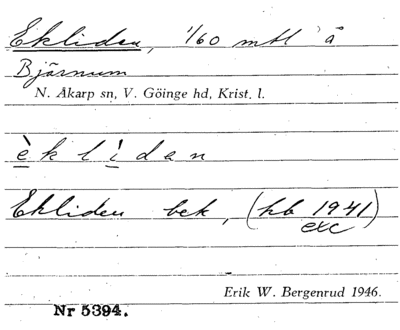 Ekliden, 1/60 mtl å
Bjärnum
N. Åkarp sn, V. Göinge hd, Krist. l.
è k l ì d a n
Ekliden bek, (hb 1941)
exc
Erik W. Bergenrud 1946.
Nr 5394.